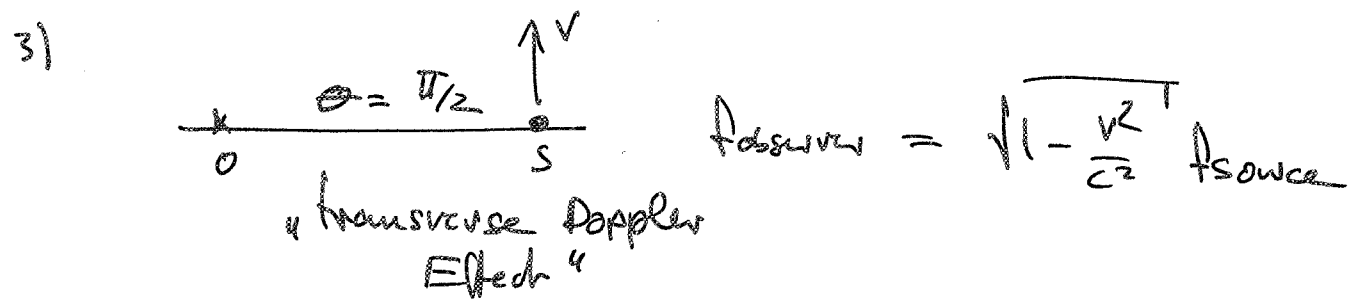 3)
V
θ = π/2
O S
f observer = √(1 - v²/c²) f source
„transverse Doppler
Effect“